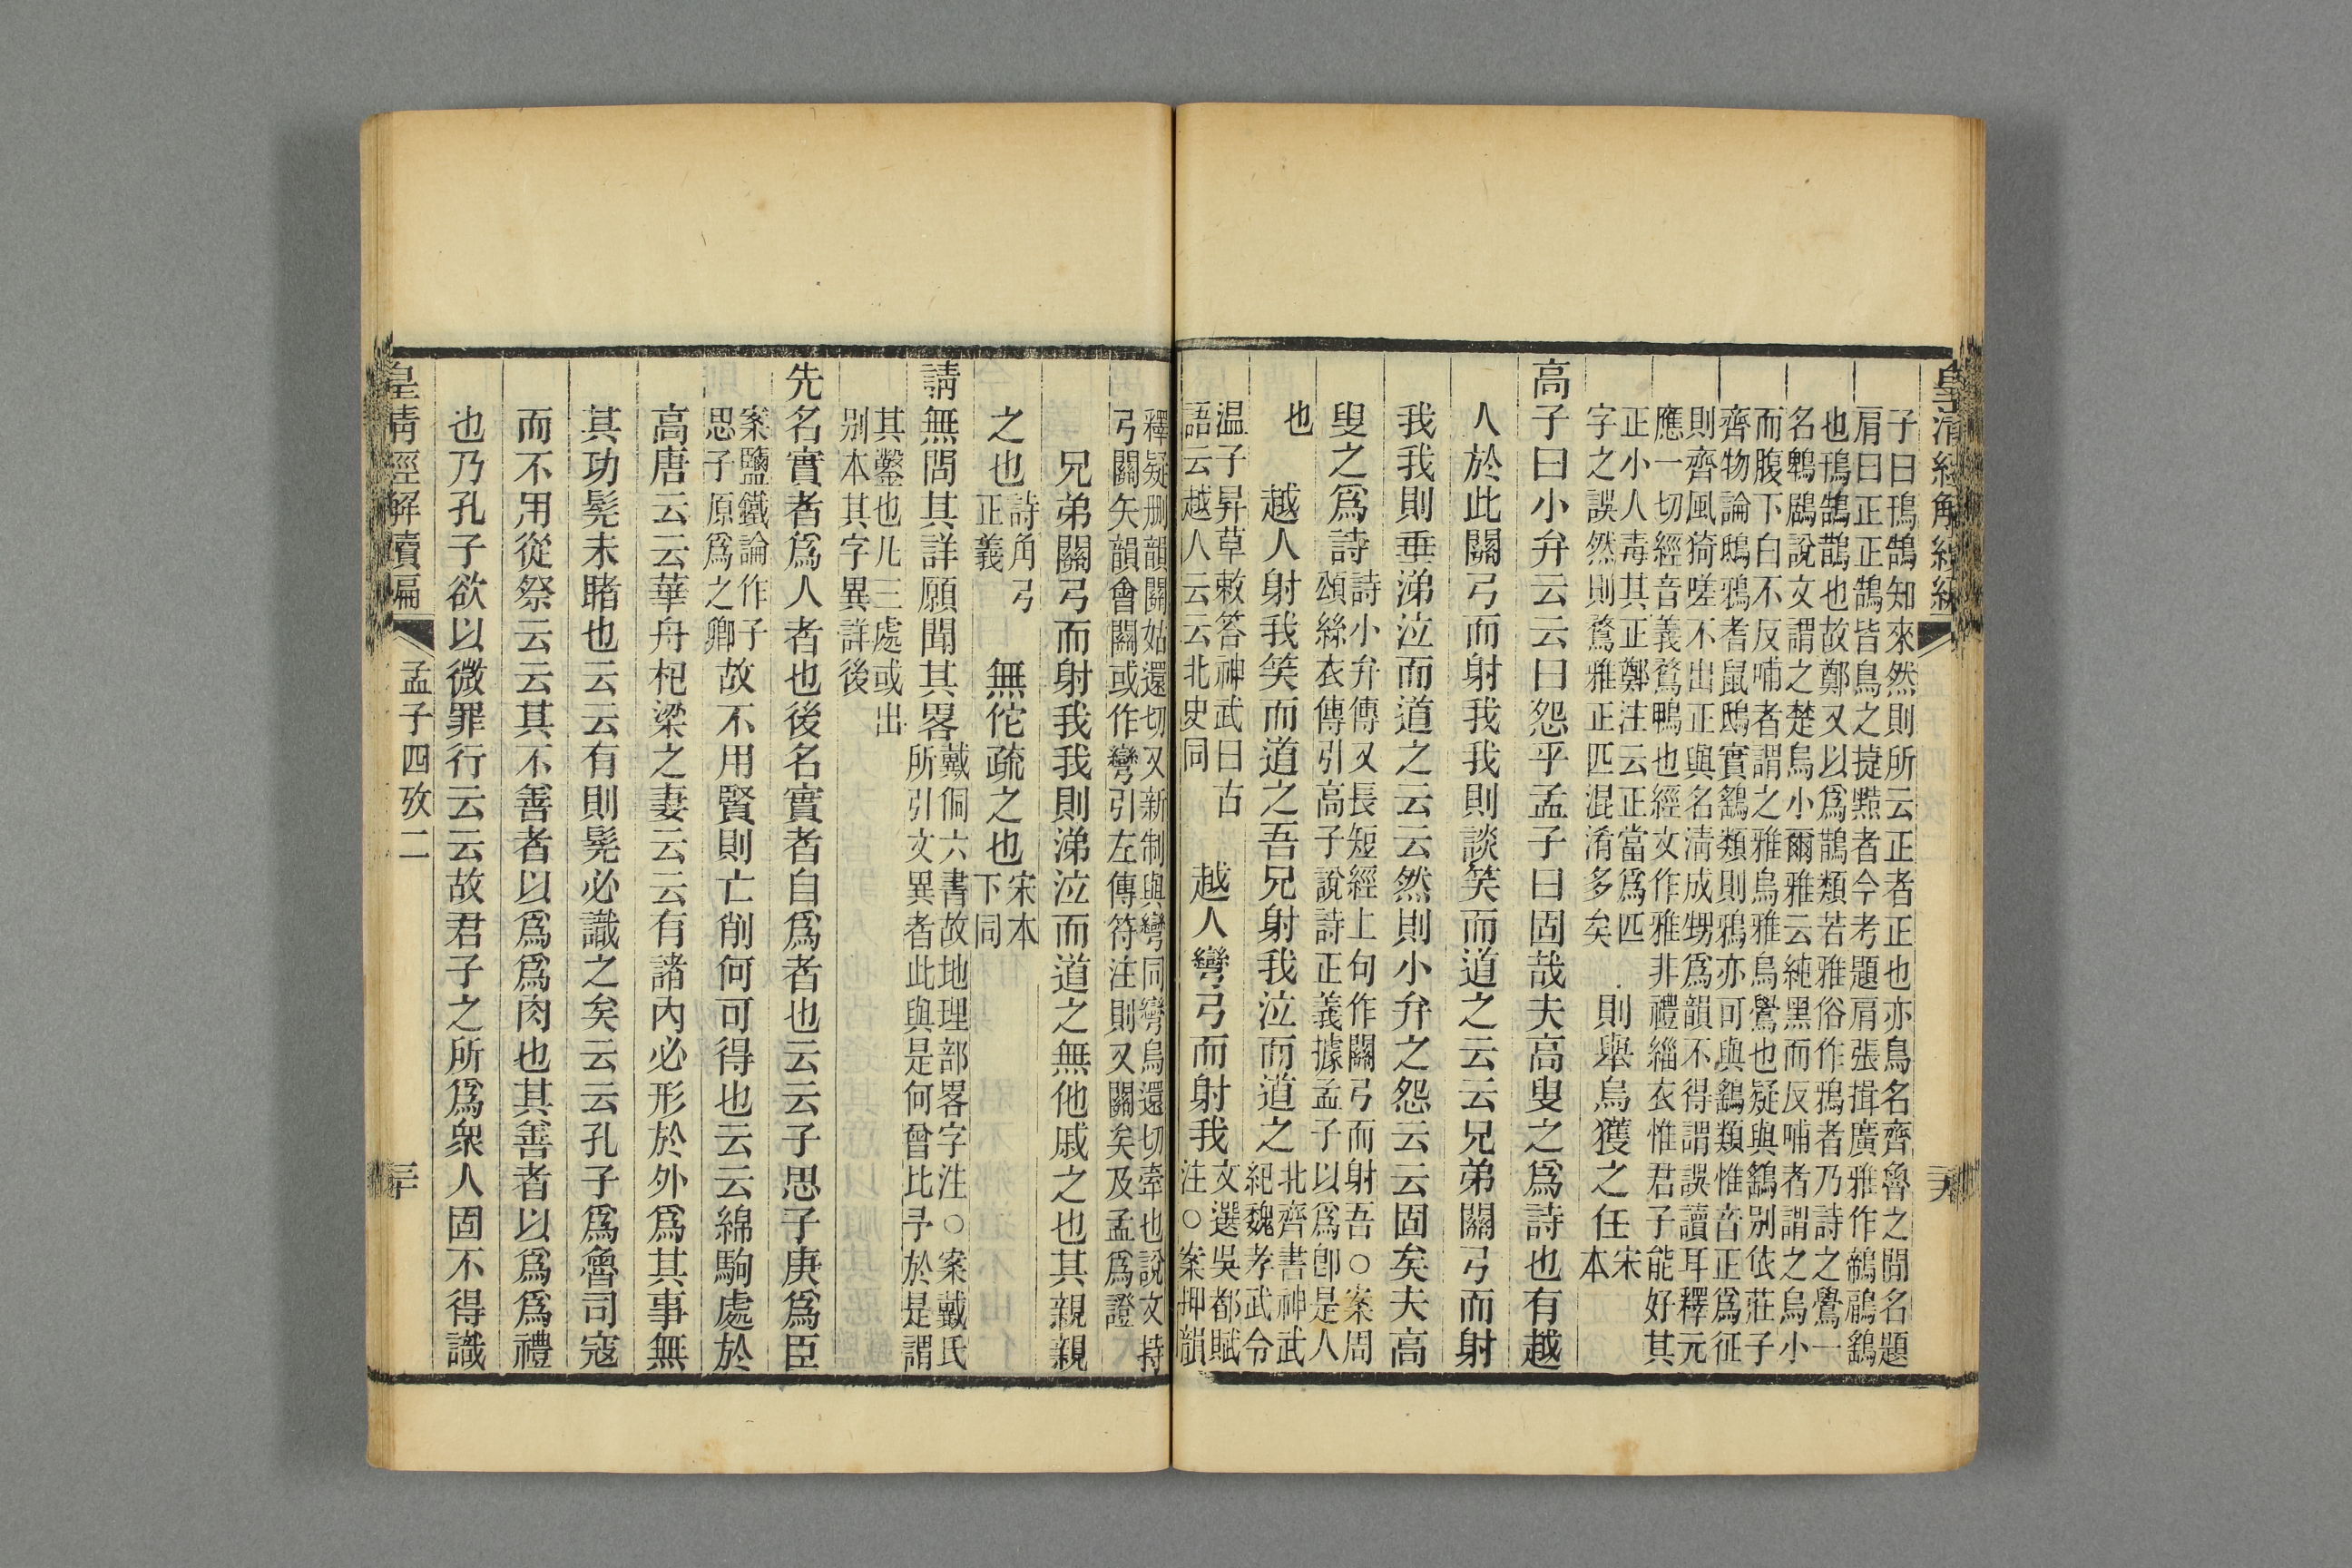 皇清經解續編
子曰鳱鵠知來然則所云正者正也亦鳥名齊魯之閒名題
肩曰正正鵠皆鳥之捷黠者今考題肩張揖廣雅作鶙鵳鷂
也鳱鵠鵲也故鄭又以爲鵲類若雅俗作鴉者乃詩之鸒一
名鵯鶋說文謂之楚烏小爾雅云純黑而反哺者謂之烏小
而腹下白不反哺者謂之雅烏雅烏鸒也疑與鷂別依莊子
齊物論鴟鴉耆鼠鴟實鷂類則鴉亦可與鷂類惟音正爲征
則齊風猗嗟不出正與名淸成甥爲韻不得謂誤讀耳釋元
應一切經音義鶩鴨也經文作雅非禮緇衣惟君子能好其
正小人毒其正鄭注云正當爲匹
字之誤然則鶩雅正匹混淆多矣
則舉烏獲之任
宋
本
高子曰小弁云云曰怨乎孟子曰固哉夫高叟之爲詩也有越
人於此關弓而射我我則談笑而道之云云兄弟關弓而射
我我則垂涕泣而道之云云然則小弁之怨云云固矣夫高
叟之爲詩
詩小弁傳又長短經上句作關弓而射吾○案周
頌絲衣傳引高子說詩正義據孟子以爲卽是人
也
越人射我笑而道之吾兄射我泣而道之
北齊書神武
紀魏孝武令
温子昇草敕答神武曰古
語云越人云云北史同
越人彎弓而射我
文選吳都賦
注○案抻韻
釋疑刪韻關姑還切又新制與彎同彎烏還切牽也說文持
弓關矢韻會關或作彎引左傳符注則又關矣及孟爲證
兄弟關弓而射我我則涕泣而道之無他戚之也其親親
之也
詩角弓
正義
無佗疏之也
宋本
下同
請無問其詳願聞其畧
戴侗六書故地理部畧字注○案戴氏
所引文異者此與是何曾比予於是謂
其鑿也凡三處或出
別本其字異詳後
先名實者爲人者也後名實者自爲者也云云子思子庚爲臣
案鹽鐵論作子
思子原爲之卿
故不用賢則亡削何可得也云云綿駒處於
高唐云云華舟杞梁之妻云云有諸內必形於外爲其事無
其功髡未睹也云云有則髡必識之矣云云孔子爲魯司寇
而不用從祭云云其不善者以爲爲肉也其善者以爲爲禮
也乃孔子欲以微罪行云云故君子之所爲衆人固不得識
皇清經解續編
孟子四攷二
三十